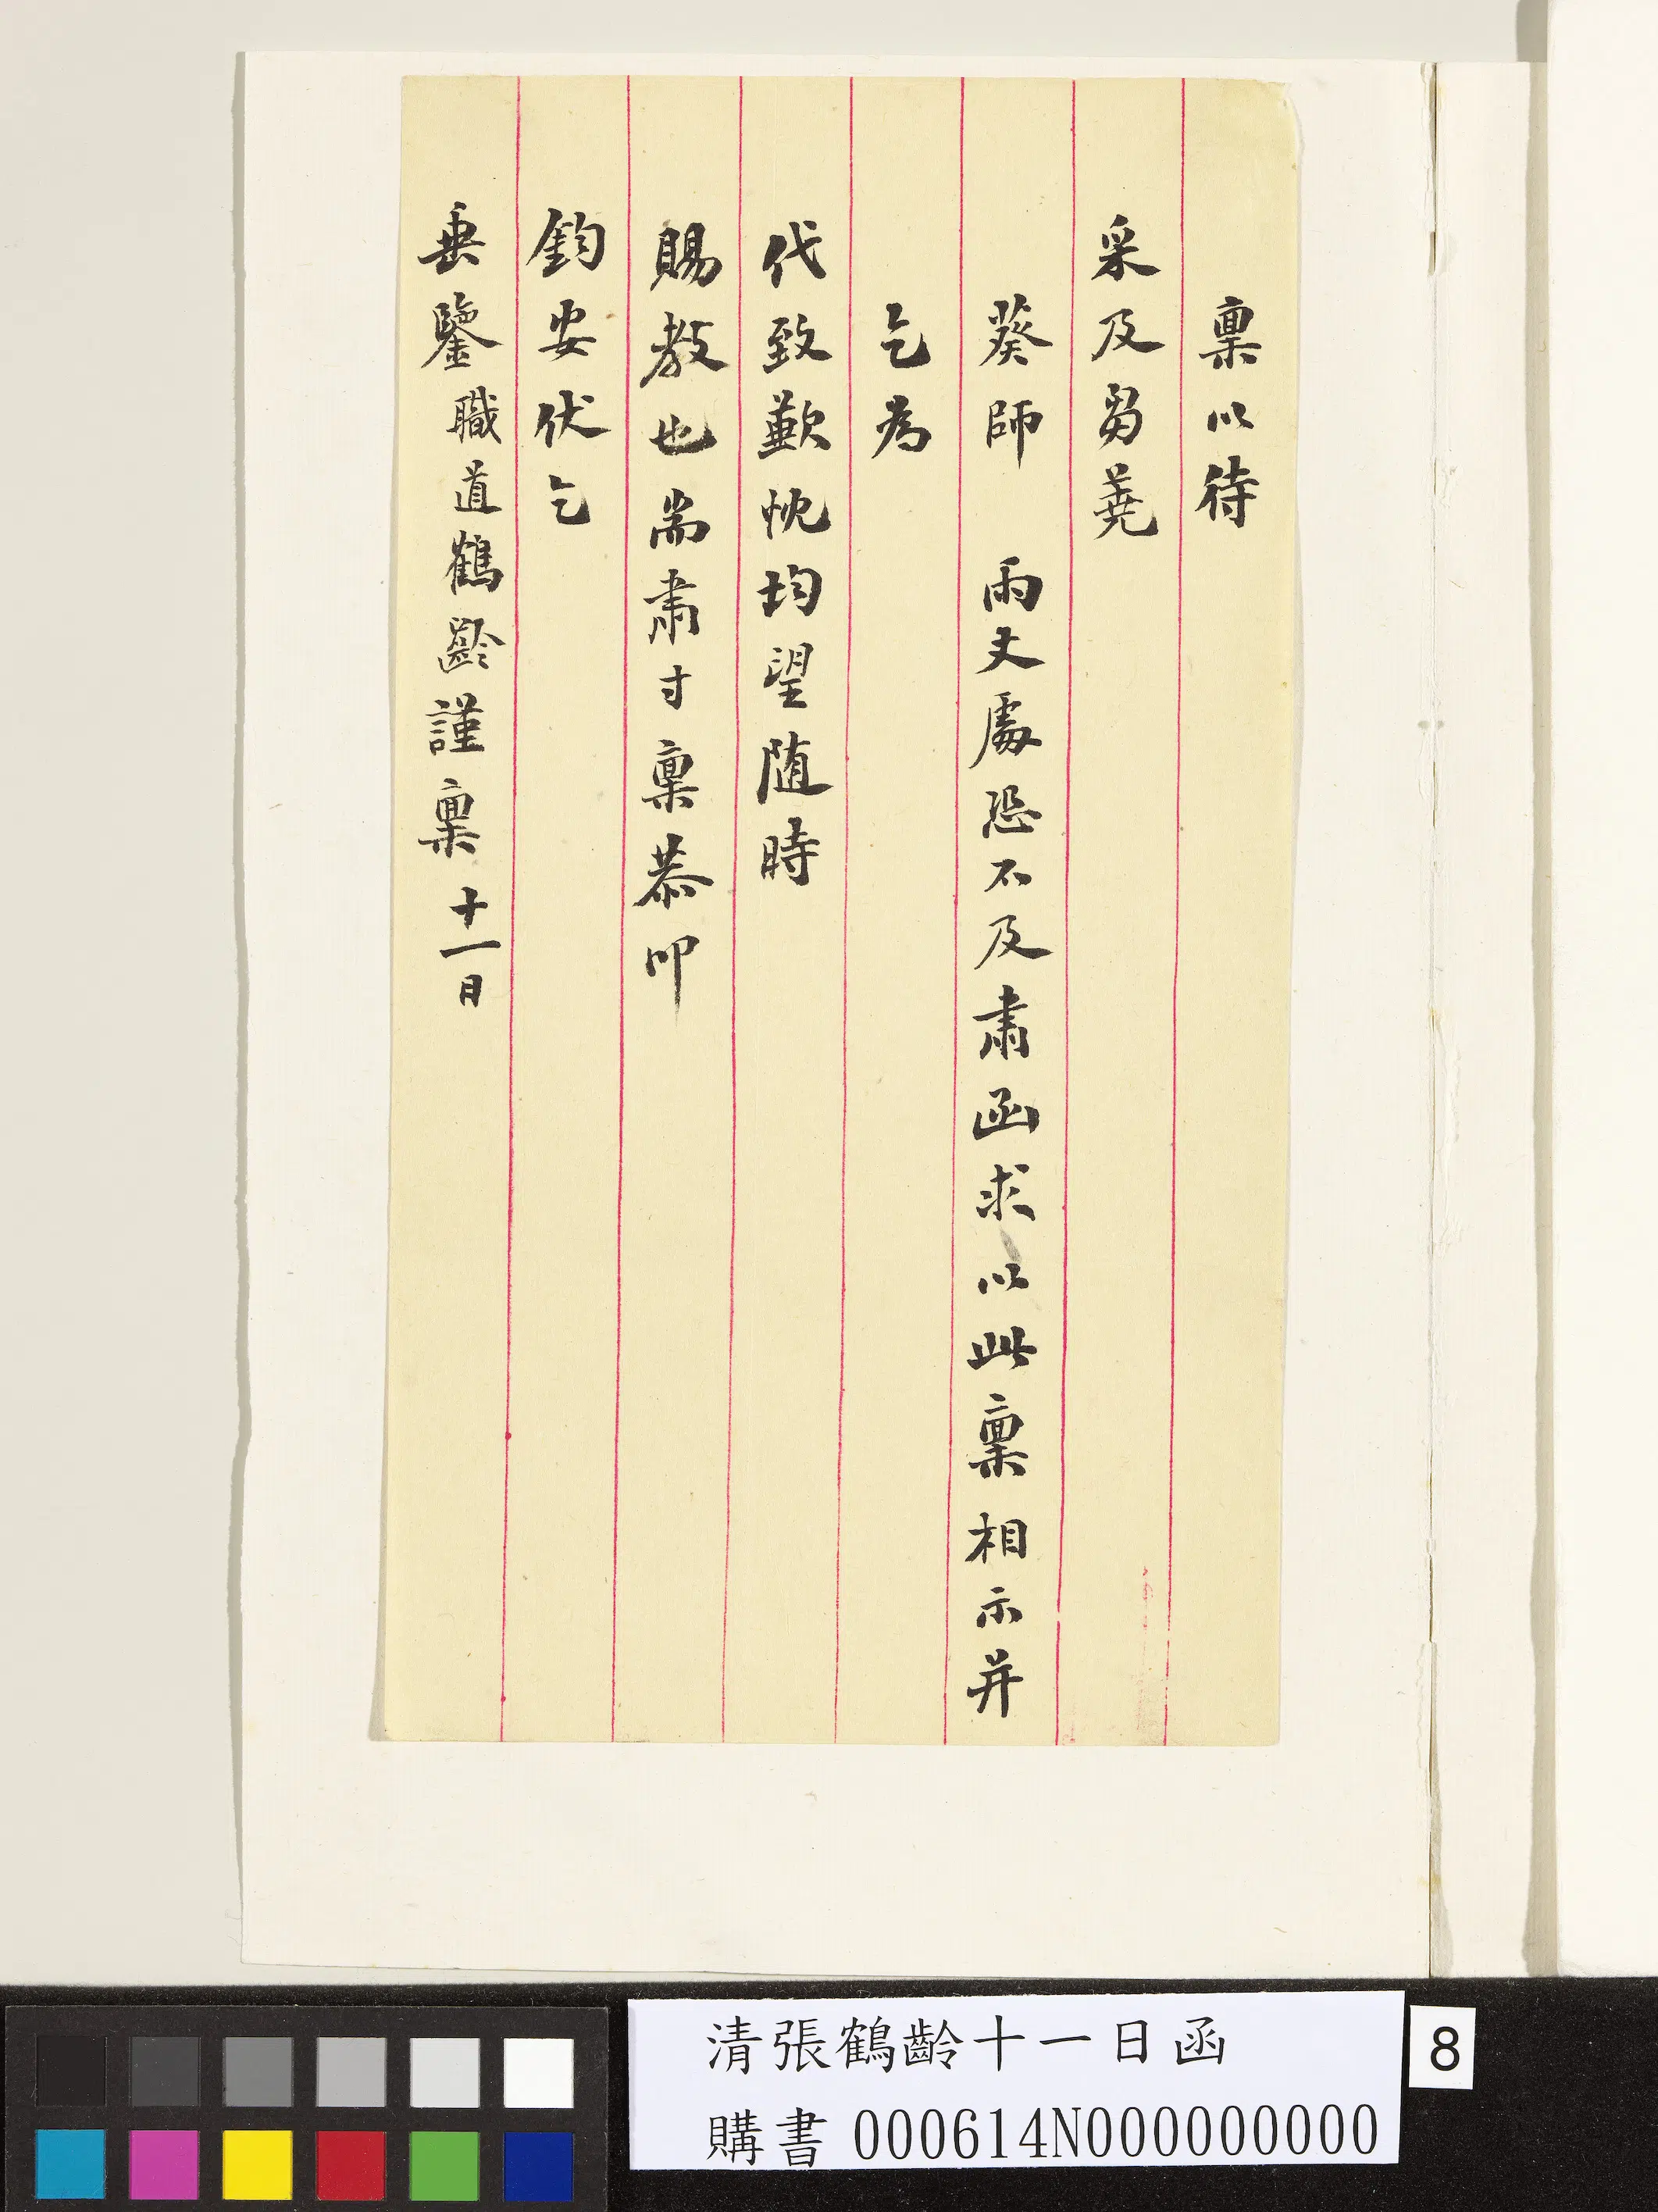 稟以待
采及芻蕘
葵師　雨丈處恐不及肅函求以此稟相示并
乞為
代致歉忱均望随時
賜教也耑肅寸稟恭叩
鈞安伏乞
垂鑒職道鶴齡謹稟十一日
清張鶴齡十一日函
購書 000614N000000000
8